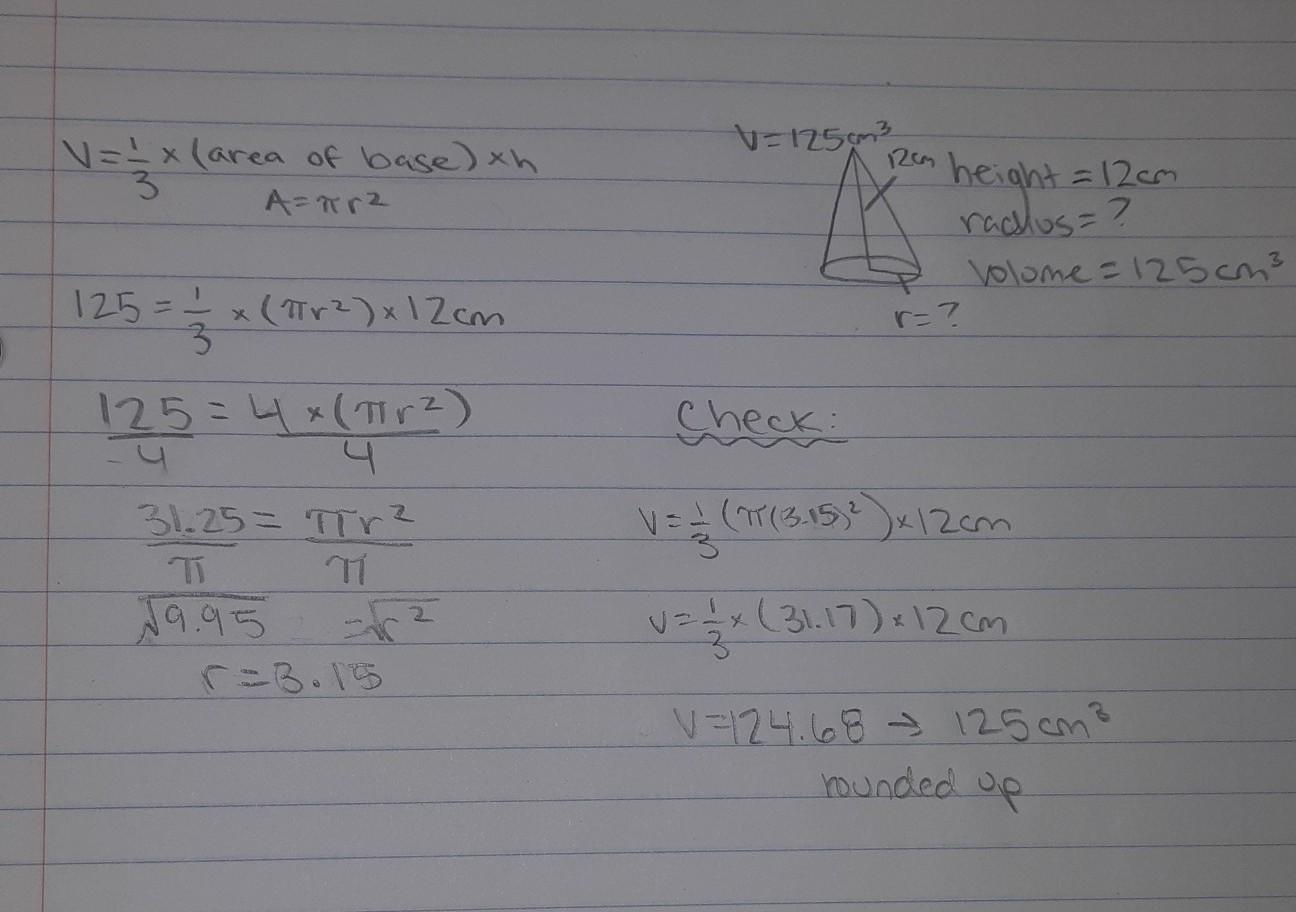 V = 1/3 × (area of base) × h
A = πr²
125 = 1/3 × (πr²) × 12cm
125/4 = 4 × (πr²)/4
31.25/π = πr²/π
√9.95 = √r²
r = 3.15
V = 125cm³
12cm
height = 12cm
radius = ?
volume = 125cm³
r = ?
Check:
V = 1/3 (π(3.15)²) × 12cm
V = 1/3 × (31.17) × 12cm
V = 124.68 → 125cm³
rounded up